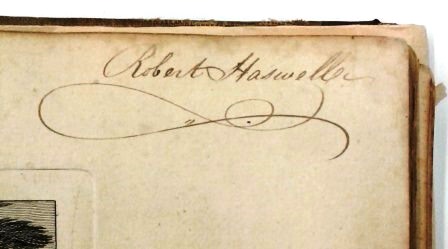 Robert Haswell